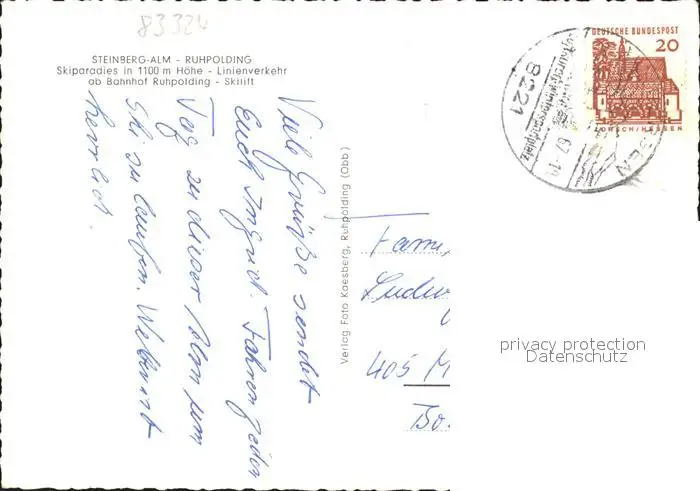 83324
STEINBERG-ALM - RUHPOLDING
Skiparadies in 1100 m Höhe - Linienverkehr
ab Bahnhof Ruhpolding - Skilift
Viele Grüße sendet
Euch Ingrid. Fahren jeden
Tag zu dieser Alm zum
Ski zu laufen. Wetter ist
herrlich.
Verlag Foto Kaesberg, Ruhpolding (Obb)
DEUTSCHE BUNDESPOST
20
LORSCH/HESSEN
8221
Luftkurort Wintersportplatz
Fami
Ludw
405 M
privacy protection
Datenschutz